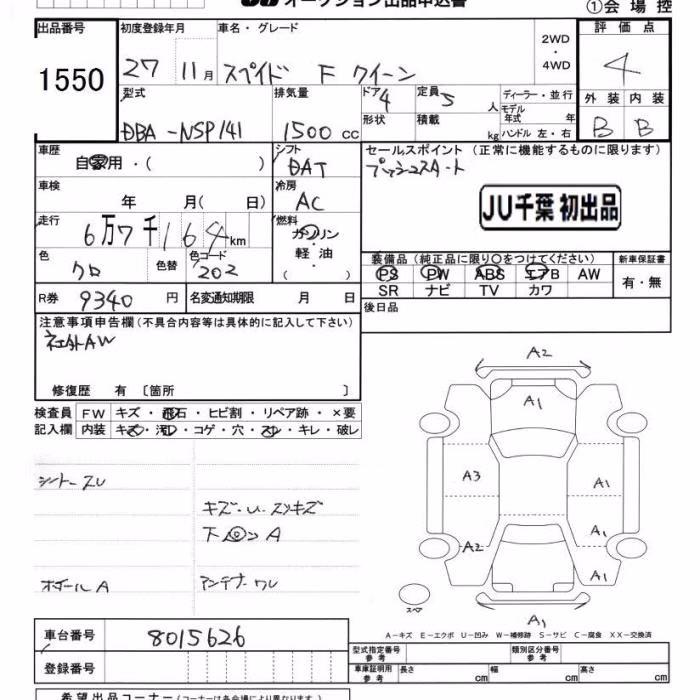 オークション出品申込書
①会場控
出品番号 初度登録年月 車名・グレード 2WD ・ 4WD 評価点
1550 27 11月 スペイド F クイーン 4
型式 排気量 ドア 4 定員 5 人 ディーラー・並行 外装 内装
DBA-NSP141 1500 cc 形状 積載 kg モデル年式 年 ハンドル 左・右 B B
車歴 自家用・( ) シフト DAT セールスポイント (正常に機能するものに限ります)
プッシュスタート
車検 年 月( 日) 冷房 AC
JU千葉 初出品
走行 6万7千164km 燃料 ガソリン 軽油
色 クロ 色替 色コード 202
装備品(純正品に限り〇をつけてください) 新車保証書
PS PW ABS エアB AW 有・無
SR ナビ TV カワ
R券 9340円 名変通知期限 月 日
後日品
注意事項申告欄(不具合内容等は具体的に記入して下さい)
社外AW
修復歴 有 〔箇所 〕
検査員 FW キズ・飛石・ヒビ割・リペア跡・×要
記入欄 内装 キズ・汚レ・コゲ・穴・スレ・キレ・破レ
A2
A1
A3 A1
A1
A2 A1
A1
スペア
シート スレ
キズ・U・スリキズ
下回ン A
ホイール A アンテナ ワレ
A-キズ E-エクボ U-凹み W-補修跡 S-サビ C-腐食 XX-交換済
車台番号 8015626
型式指定番号 参考 類別区分番号 参考
登録番号 車庫証明用 参考 長さ cm 幅 cm 高さ cm
希望出品コーナー(コーナーは各会場により異なります。)